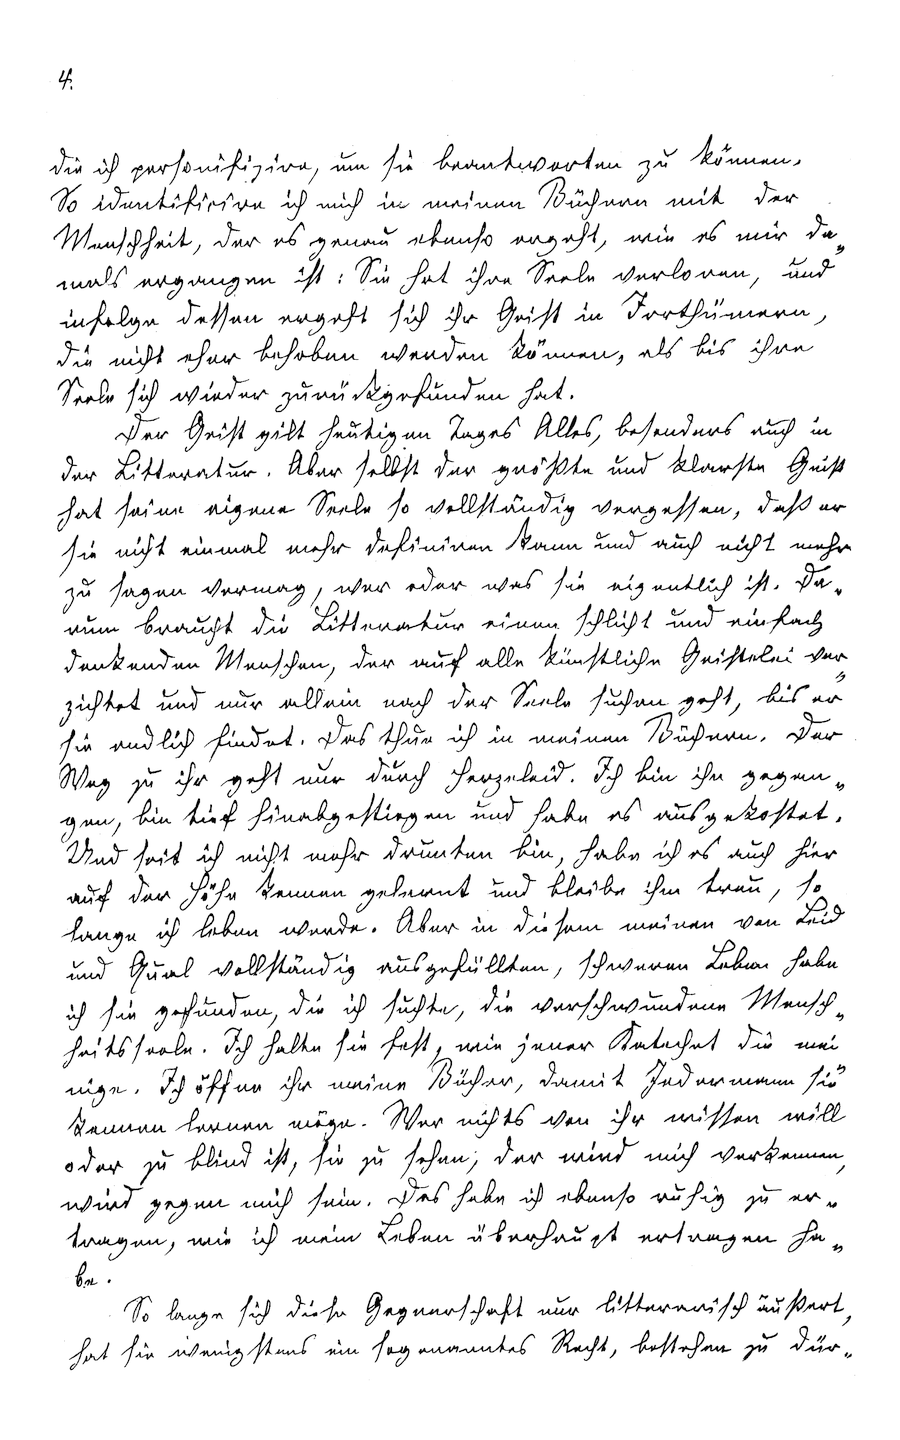 4.
die ich personifizire, um sie beantworten zu können.
So identifizire ich mich in meinen Büchern mit der
Menschheit, der es genau ebenso ergeht, wie es mir da„
mals ergangen ist: Sie hat ihre Seele verloren, und
infolge dessen ergeht sich ihr Geist in Irrthümern,
die nicht eher behoben werden können, als bis ihre
Seele sich wieder zurückgefunden hat.
Der Geist gilt heutigen Tages Alles, besonders auch in
der Litteratur. Aber selbst der größte und klarste Geist
hat seine eigene Seele so vollständig vergessen, daß er
sie nicht einmal mehr definiren kann und auch nicht mehr
zu sagen vermag, wer oder was sie eigentlich ist. Da„
rum braucht die Litteratur einen schlicht und einfach
denkenden Menschen, der auf alle künstliche Geistelei ver„
zichtet und nur allein nach der Seele suchen geht, bis er
sie endlich findet. Das thue ich in meinen Büchern. Der
Weg zu ihr geht nur durch Herzeleid. Ich bin ihn gegan„
gen, bin tief hinabgestiegen und habe es ausgekostet.
Und seit ich nicht mehr drunten bin, habe ich es auch hier
auf der Höhe kennen gelernt und bleibe ihm treu, so
lange ich leben werde. Aber in diesem meinen von Leid
und Qual vollständig ausgefüllten, schweren Leben habe
ich sie gefunden, die ich suchte, die verschwundene Mensch„
heitsseele. Ich halte sie fest, wie jener Katechet die mei„
nige. Ich öffne ihr meine Bücher, damit Jedermann sie
kennen lernen möge. Wer nichts von ihr wissen will
oder zu blind ist, sie zu sehen, der wird mich verkennen,
wird gegen mich sein. Das habe ich ebenso ruhig zu er„
tragen, wie ich mein Leben überhaupt ertragen ha„
be.
So lange sich diese Gegnerschaft nur litterarisch äußert,
hat sie wenigstens ein sogenanntes Recht, bestehen zu dür„